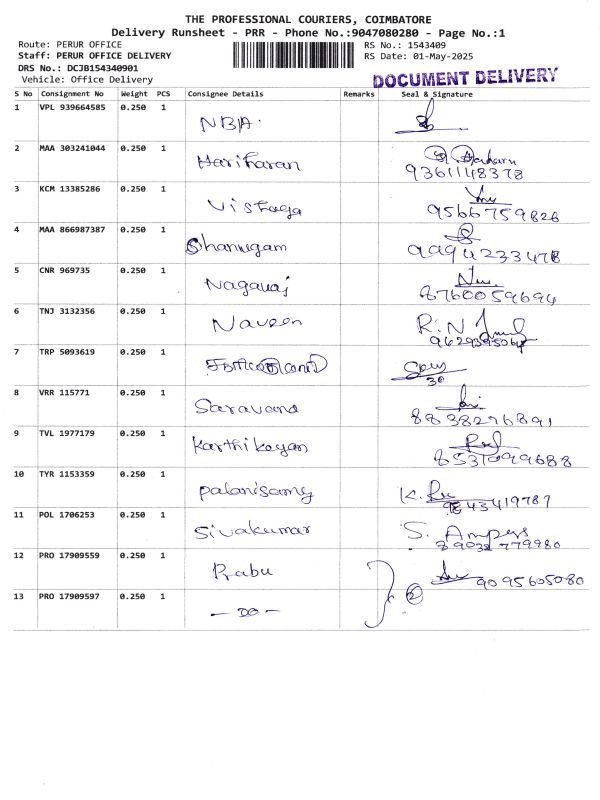 THE PROFESSIONAL COURIERS, COIMBATORE
Delivery Runsheet - PRR - Phone No.:9047080280 - Page No.:1
Route: PERUR OFFICE
RS No.: 1543409
Staff: PERUR OFFICE DELIVERY
RS Date: 01-May-2025
DRS No.: DCJB154340901
Vehicle: Office Delivery
DOCUMENT DELIVERY
S No Consignment No Weight PCS Consignee Details Remarks Seal & Signature
1 VPL 939664585 0.250 1 NBA.
2 MAA 303241044 0.250 1 Hariharan
9361148378
3 KCM 13385286 0.250 1
9566759826
4 MAA 866987387 0.250 1 Shanmugam
9994233478
5 CNR 969735 0.250 1 Nagaraj
8760059694
6 TNJ 3132356 0.250 1 Naveen R.N
7 TRP 5093619 0.250 1
30
8 VRR 115771 0.250 1 Saravana
8838296891
9 TVL 1977179 0.250 1 Karthikeyan
8531099688
10 TYR 1153359 0.250 1 Palanisamy K.
9843419787
11 POL 1706253 0.250 1 Sivakumar S.
12 PRO 17909559 0.250 1 Prabu 9095605080
13 PRO 17909597 0.250 1 - DO - 2